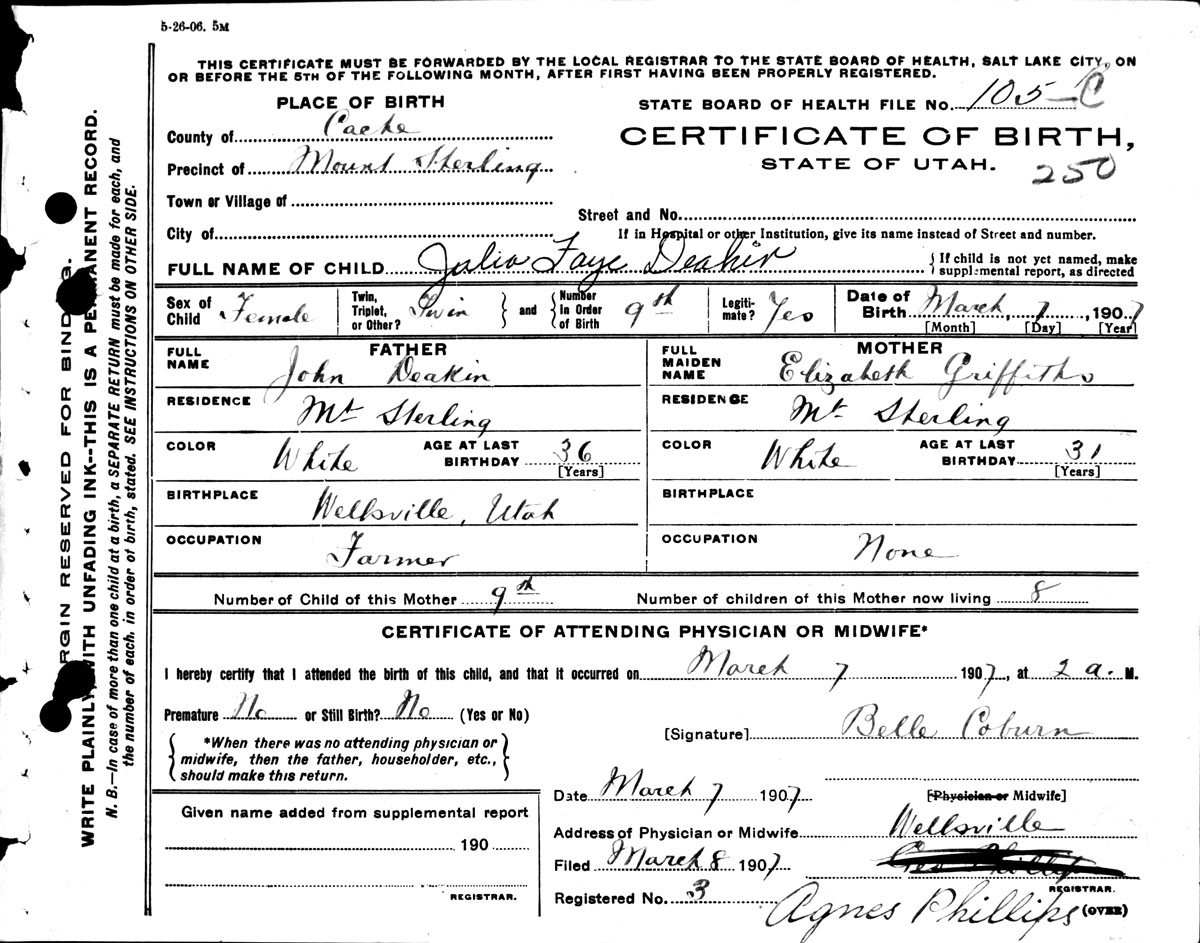 5-26-06. 5M
THIS CERTIFICATE MUST BE FORWARDED BY THE LOCAL REGISTRAR TO THE STATE BOARD OF HEALTH, SALT LAKE CITY, ON
OR BEFORE THE 5TH OF THE FOLLOWING MONTH, AFTER FIRST HAVING BEEN PROPERLY REGISTERED.
PLACE OF BIRTH
STATE BOARD OF HEALTH FILE No. 105-C
County of Cache
CERTIFICATE OF BIRTH,
Precinct of Mount Sterling
STATE OF UTAH. 250
Town or Village of
Street and No.
City of
If in Hospital or other Institution, give its name instead of Street and number.
FULL NAME OF CHILD Julia Faye Deakin { If child is not yet named, make
supplemental report, as directed
Sex of Child Female Twin, Triplet, or Other? Twin } and { Number In Order of Birth 9th Legiti- mate? Yes Date of Birth March, 7, 1907
[Month] [Day] [Year]
FATHER MOTHER
FULL NAME John Deakin FULL MAIDEN NAME Elizabeth Griffiths
RESIDENCE Mt Sterling RESIDENCE Mt Sterling
COLOR White AGE AT LAST BIRTHDAY 36 [Years] COLOR White AGE AT LAST BIRTHDAY 31 [Years]
BIRTHPLACE Wellsville, Utah BIRTHPLACE
OCCUPATION Farmer OCCUPATION None
Number of Child of this Mother 9th Number of children of this Mother now living 8
CERTIFICATE OF ATTENDING PHYSICIAN OR MIDWIFE*
I hereby certify that I attended the birth of this child, and that it occurred on March 7 1907, at 2 a. M.
Premature No or Still Birth? No (Yes or No)
[Signature] Belle Coburn
{ *When there was no attending physician or
midwife, then the father, householder, etc.,
should make this return. }
Date March 7 1907 [Physician or Midwife]
Given name added from supplemental report
Address of Physician or Midwife Wellsville
190
Filed March 8 1907 Geo Phillip
REGISTRAR.
REGISTRAR.
Registered No. 3 Agnes Phillips (OVER)
RGIN RESERVED FOR BINDING.
WRITE PLAINLY, WITH UNFADING INK--THIS IS A PERMANENT RECORD.
N. B.—In case of more than one child at a birth, a SEPARATE RETURN must be made for each, and
the number of each, in order of birth, stated. SEE INSTRUCTIONS ON OTHER SIDE.